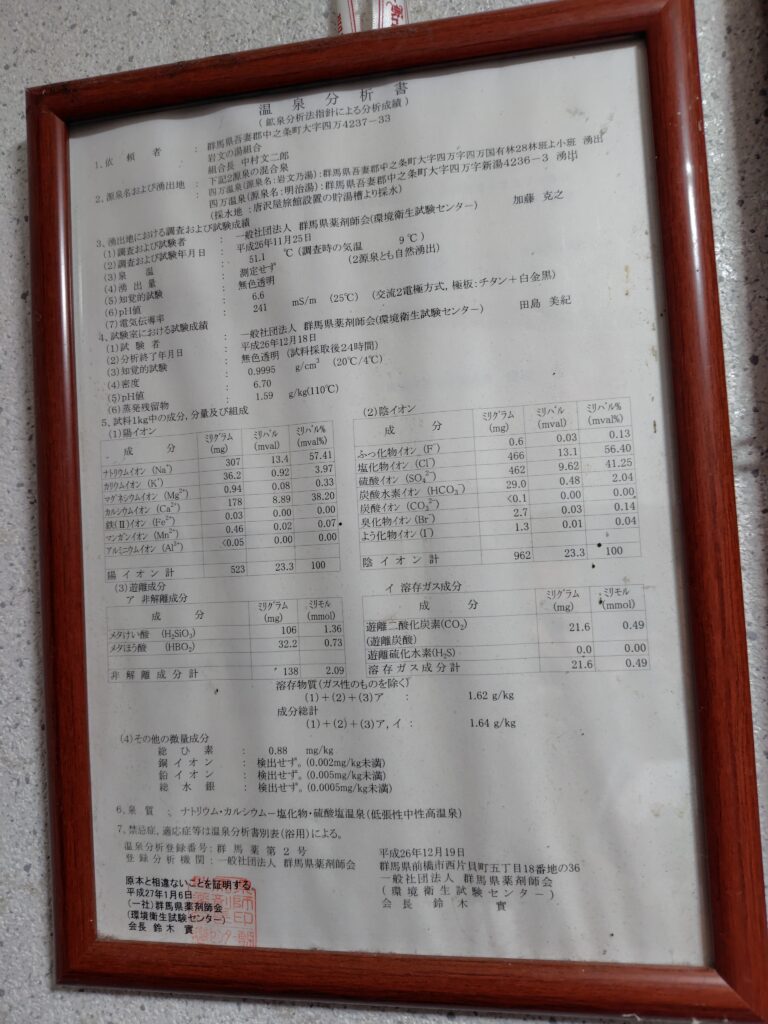 温泉分析書
(鉱泉分析法指針による分析成績)
1. 依頼者 : 群馬県吾妻郡中之条町大字四万4237-33
岩文の湯組合
組合長 中村文二郎
2. 源泉名および湧出地 : 下記2源泉の混合泉
四万温泉(源泉名:岩文乃湯):群馬県吾妻郡中之条町大字四万字四万国有林28林班よ小班 湧出
四万温泉(源泉名:明治湯):群馬県吾妻郡中之条町大字四万字新湯4236-3 湧出
(採水地:唐沢屋旅館設置の貯湯槽より採水)
3. 湧出地における調査および試験成績
(1)調査および試験者 : 一般社団法人 群馬県薬剤師会(環境衛生試験センター) 加藤 克之
(2)調査および試験年月日 : 平成26年11月25日
(3)泉温 : 51.1 ℃(調査時の気温 9℃)
(4)湧出量 : 測定せず (2源泉とも自然湧出)
(5)知覚的試験 : 無色透明
(6)pH値 : 6.6
(7)電気伝導率 : 241 mS/m (25℃) (交流2電極方式,極板:チタン+白金黒)
4. 試験室における試験成績
(1)試験者 : 一般社団法人 群馬県薬剤師会(環境衛生試験センター) 田島 美紀
(2)分析終了年月日 : 平成26年12月18日
(3)知覚的試験 : 無色透明 (試料採取後24時間)
(4)密度 : 0.9995 g/cm³ (20℃/4℃)
(5)pH値 : 6.70
(6)蒸発残留物 : 1.59 g/kg(110℃)
5. 試料1kg中の成分,分量及び組成
(1)陽イオン
成分 ミリグラム(mg) ミリバル(mval) ミリバル%(mval%)
ナトリウムイオン (Na⁺) 307 13.4 57.41
カリウムイオン (K⁺) 36.2 0.92 3.97
マグネシウムイオン (Mg²⁺) 0.94 0.08 0.33
カルシウムイオン (Ca²⁺) 178 8.89 38.20
鉄(Ⅱ)イオン (Fe²⁺) 0.03 0.00 0.00
マンガンイオン (Mn²⁺) 0.46 0.02 0.07
アルミニウムイオン (Al³⁺) <0.05 0.00 0.00
陽イオン計 523 23.3 100
(2)陰イオン
成分 ミリグラム(mg) ミリバル(mval) ミリバル%(mval%)
ふっ化物イオン (F⁻) 0.6 0.03 0.13
塩化物イオン (Cl⁻) 466 13.1 56.40
硫酸イオン (SO₄²⁻) 462 9.62 41.25
炭酸水素イオン (HCO₃⁻) 29.0 0.48 2.04
炭酸イオン (CO₃²⁻) <0.1 0.00 0.00
臭化物イオン (Br⁻) 2.7 0.03 0.14
よう化物イオン (I⁻) 1.3 0.01 0.04
陰イオン計 962 23.3 100
(3)遊離成分
ア 非解離成分
成分 ミリグラム(mg) ミリモル(mmol)
メタけい酸 (H₂SiO₃) 106 1.36
メタほう酸 (HBO₂) 32.2 0.73
非解離成分計 138 2.09
イ 溶存ガス成分
成分 ミリグラム(mg) ミリモル(mmol)
遊離二酸化炭素(CO₂) 21.6 0.49
(遊離炭酸)
遊離硫化水素(H₂S) 0.0 0.00
溶存ガス成分計 21.6 0.49
溶存物質(ガス性のものを除く)
(1)+(2)+(3)ア : 1.62 g/kg
成分総計
(1)+(2)+(3)ア,イ : 1.64 g/kg
(4)その他の微量成分
総ひ素 : 0.88 mg/kg
銅イオン : 検出せず。(0.002mg/kg未満)
鉛イオン : 検出せず。(0.005mg/kg未満)
総水銀 : 検出せず。(0.0005mg/kg未満)
6. 泉質 : ナトリウム・カルシウム-塩化物・硫酸塩温泉(低張性中性高温泉)
7. 禁忌症,適応症等は温泉分析書別表(浴用)による。
温泉分析登録番号:群馬薬第2号
登録分析機関:一般社団法人 群馬県薬剤師会
平成26年12月19日
群馬県前橋市西片貝町五丁目18番地の36
一般社団法人 群馬県薬剤師会
(環境衛生試験センター)
会長 鈴木 實
原本と相違ないことを証明する。
平成27年1月6日
(一社)群馬県薬剤師会
(環境衛生試験センター)
会長 鈴木 實